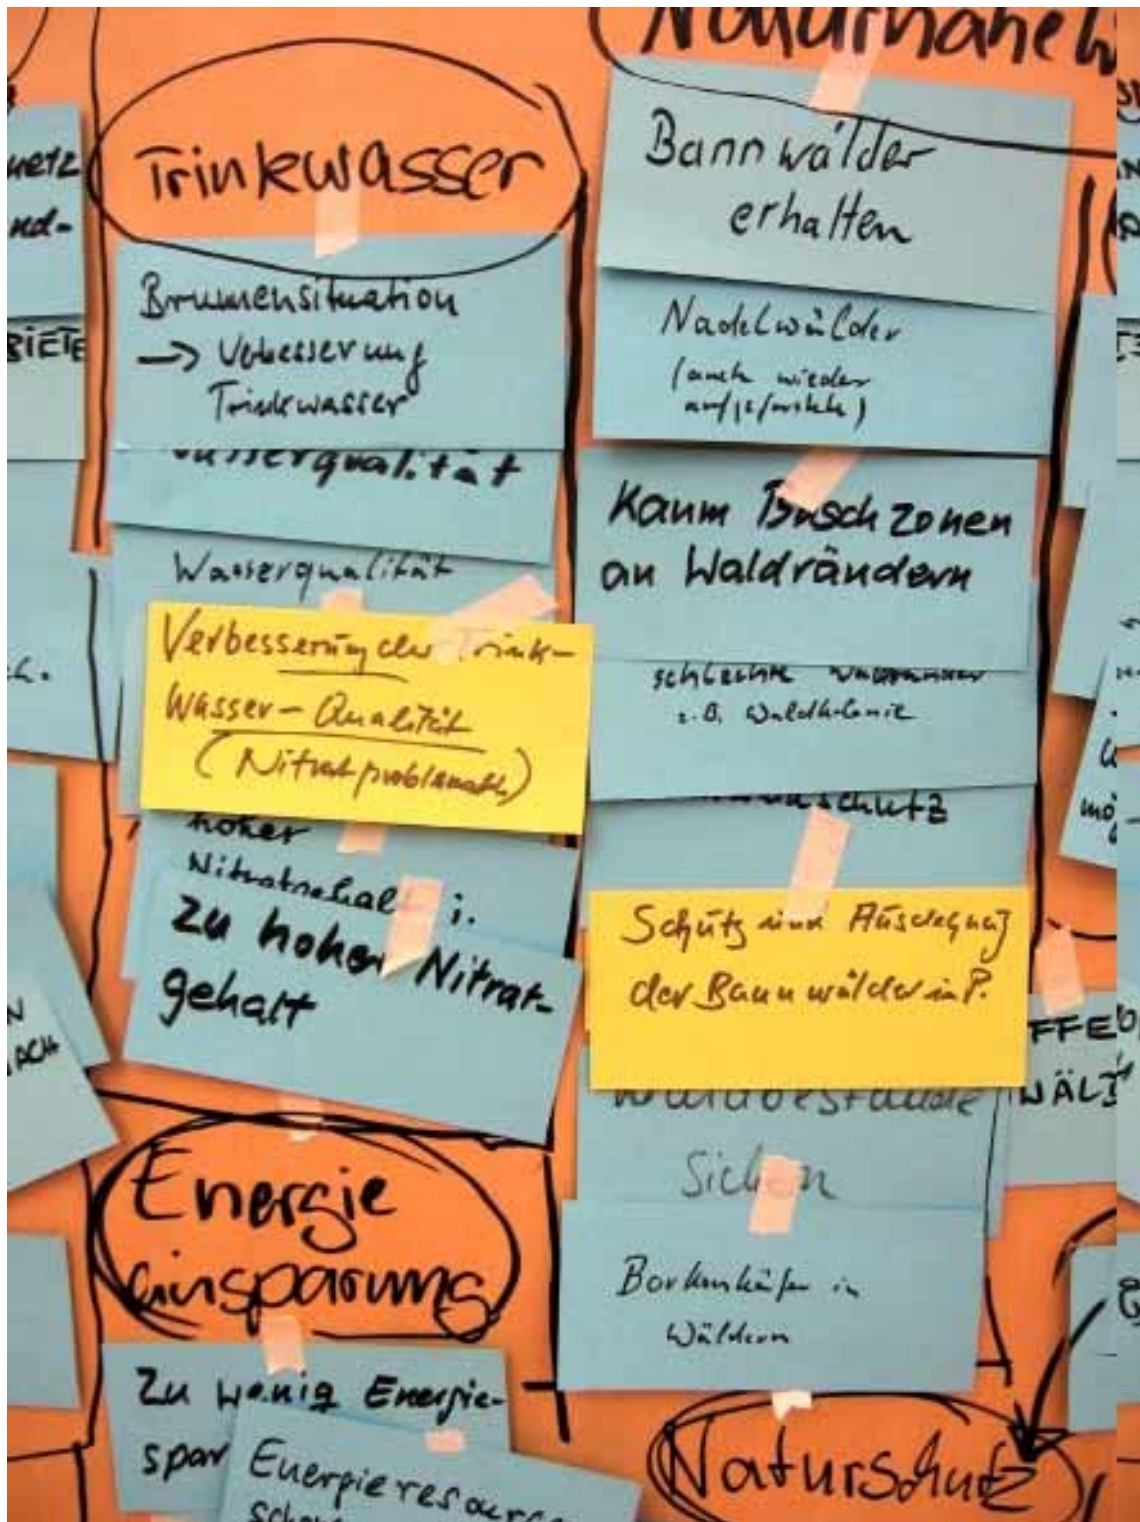 Trinkwasser
Brunnensituation
→ Verbesserung
Trinkwasser
Wasserqualität
Wasserqualität
Verbesserung der Trink-
Wasser-Qualität
(Nitratproblematik)
hoher
Nitratgehalt i.
Zu hoher Nitrat-
gehalt
Energie
einsparung
Zu wenig Energie-
spar
Energieresource
Bannwälder
erhalten
Nadelwälder
(auch wieder
aufgeforstete)
Kaum Buschzonen
an Waldrändern
schlechte Waldränder
z.B. Waldkolonie
schutz
Schutz und Ausweisung
der Bannwälder in P.
Waldbestände
Sichern
Borkenkäfer in
Wäldern
Naturschutz